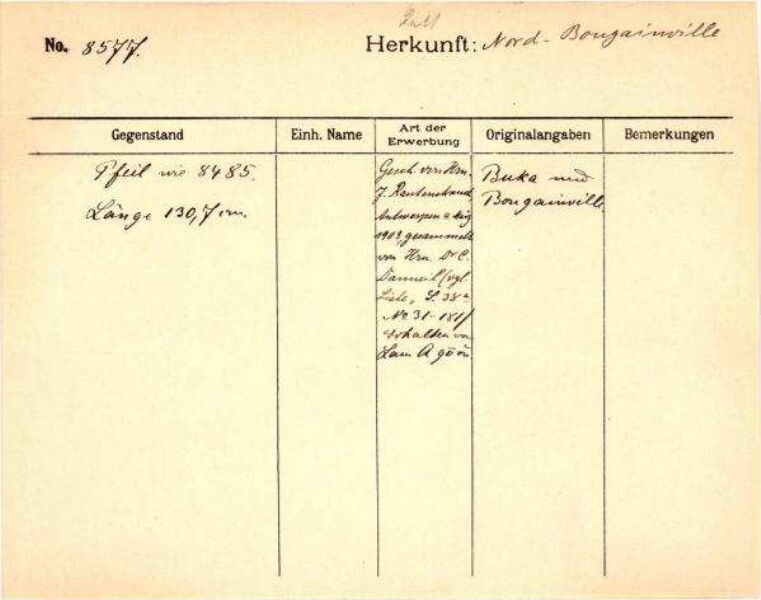 No. 8577.
Herkunft: Nord-Bougainville
Gegenstand
Einh. Name
Art der
Erwerbung
Originalangaben
Bemerkungen
Pfeil wie 8485.
Länge 130,7 cm.
Gesch. von Hrn.
J. Rautenstrauch
Antwerpen
gesammelt
von Hrn. Dr C.
Danneil (vgl.
Liste, S. 38a
No 31-181)
Erhalten von
Buka und
Bougainville